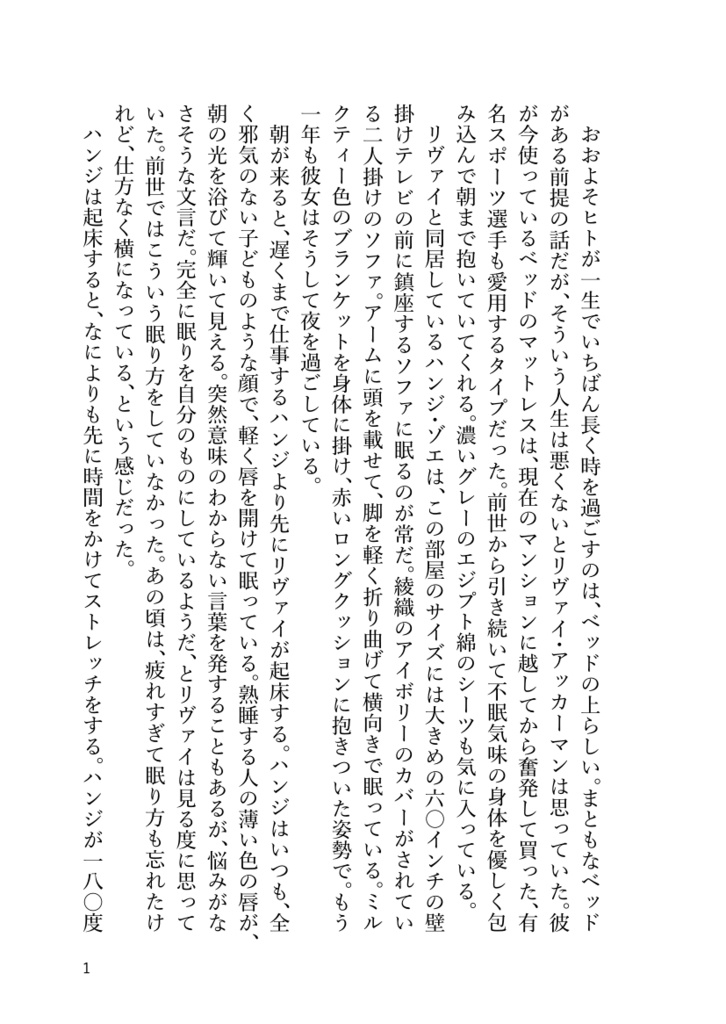 おおよそヒトが一生でいちばん長く時を過ごすのは、ベッドの上らしい。まともなベッド
がある前提の話だが、そういう人生は悪くないとリヴァイ・アッカーマンは思っていた。彼
が今使っているベッドのマットレスは、現在のマンションに越してから奮発して買った、有
名スポーツ選手も愛用するタイプだった。前世から引き続いて不眠気味の身体を優しく包
み込んで朝まで抱いていてくれる。濃いグレーのエジプト綿のシーツも気に入っている。
リヴァイと同居しているハンジ・ゾエは、この部屋のサイズには大きめの六〇インチの壁
掛けテレビの前に鎮座するソファに眠るのが常だ。綾織のアイボリーのカバーがされてい
る二人掛けのソファ。アームに頭を載せて、脚を軽く折り曲げて横向きで眠っている。ミル
クティー色のブランケットを身体に掛け、赤いロングクッションに抱きついた姿勢で。もう
一年も彼女はそうして夜を過ごしている。
朝が来ると、遅くまで仕事するハンジより先にリヴァイが起床する。ハンジはいつも、全
く邪気のない子どものような顔で、軽く唇を開けて眠っている。熟睡する人の薄い色の唇が、
朝の光を浴びて輝いて見える。突然意味のわからない言葉を発することもあるが、悩みがな
さそうな文言だ。完全に眠りを自分のものにしているようだ、とリヴァイは見る度に思って
いた。前世ではこういう眠り方をしていなかった。あの頃は、疲れすぎて眠り方も忘れたけ
れど、仕方なく横になっている、という感じだった。
ハンジは起床すると、なによりも先に時間をかけてストレッチをする。ハンジが一八〇度
1